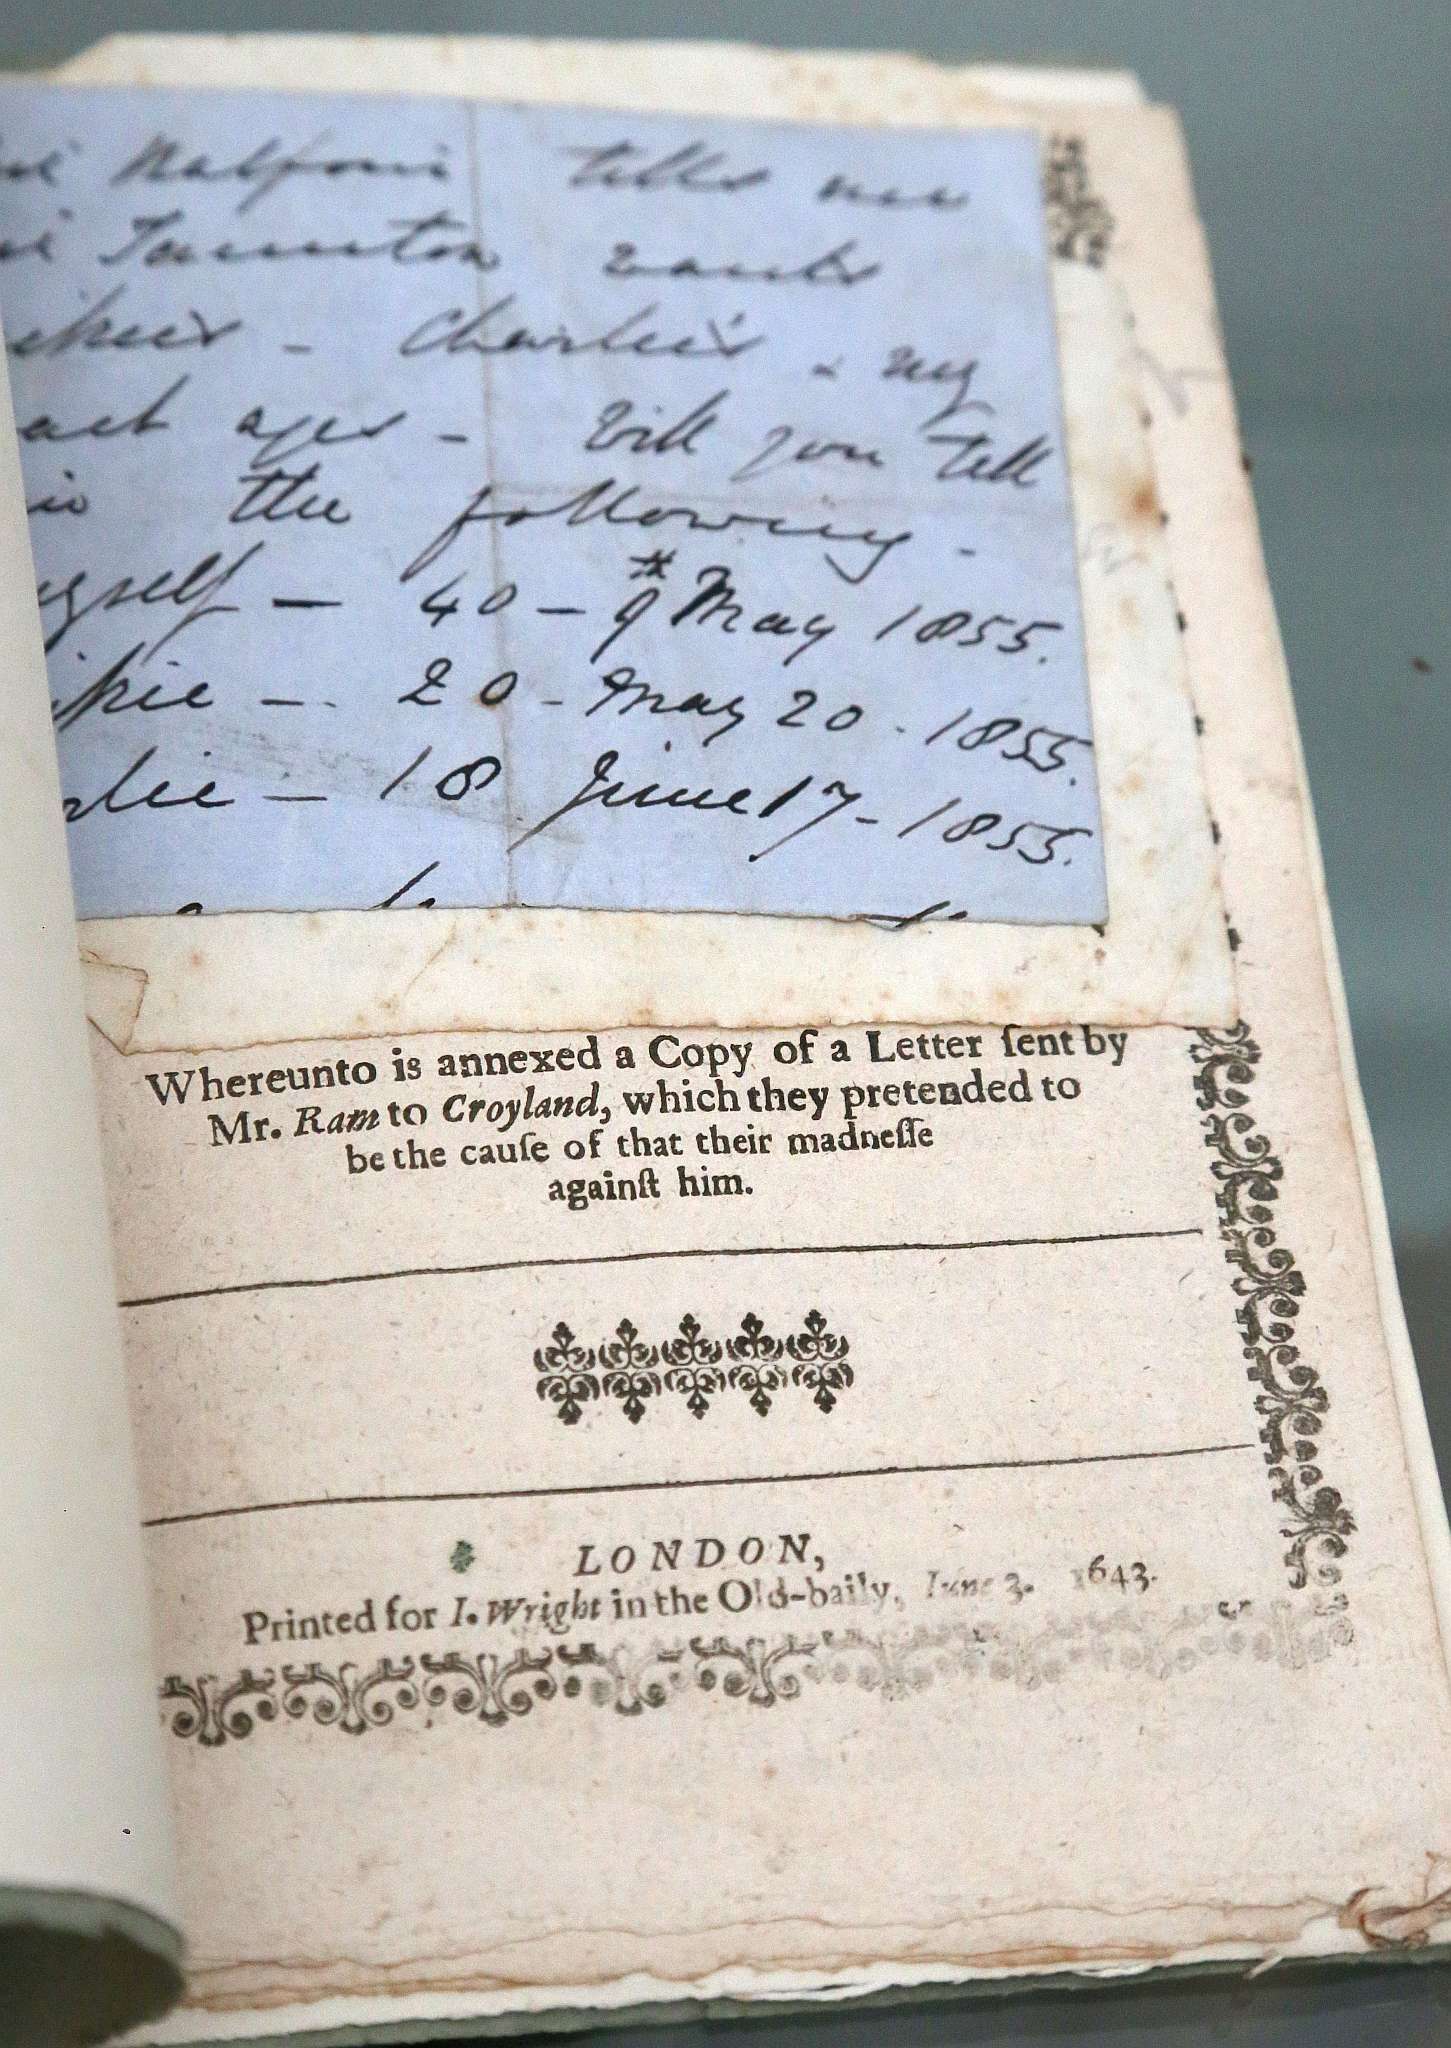 tells me
Taunton wants
- Charlie's & my
ages - Will you tell
the following -
myself - 40 - 9 May 1855.
20 - May 20 - 1855.
18 June 17 - 1855.
Whereunto is annexed a Copy of a Letter ſent by
Mr. Ram to Croyland, which they pretended to
be the cauſe of that their madneſſe
againſt him.
LONDON,
Printed for I. Wright in the Old-baily, Iune 3. 1643.